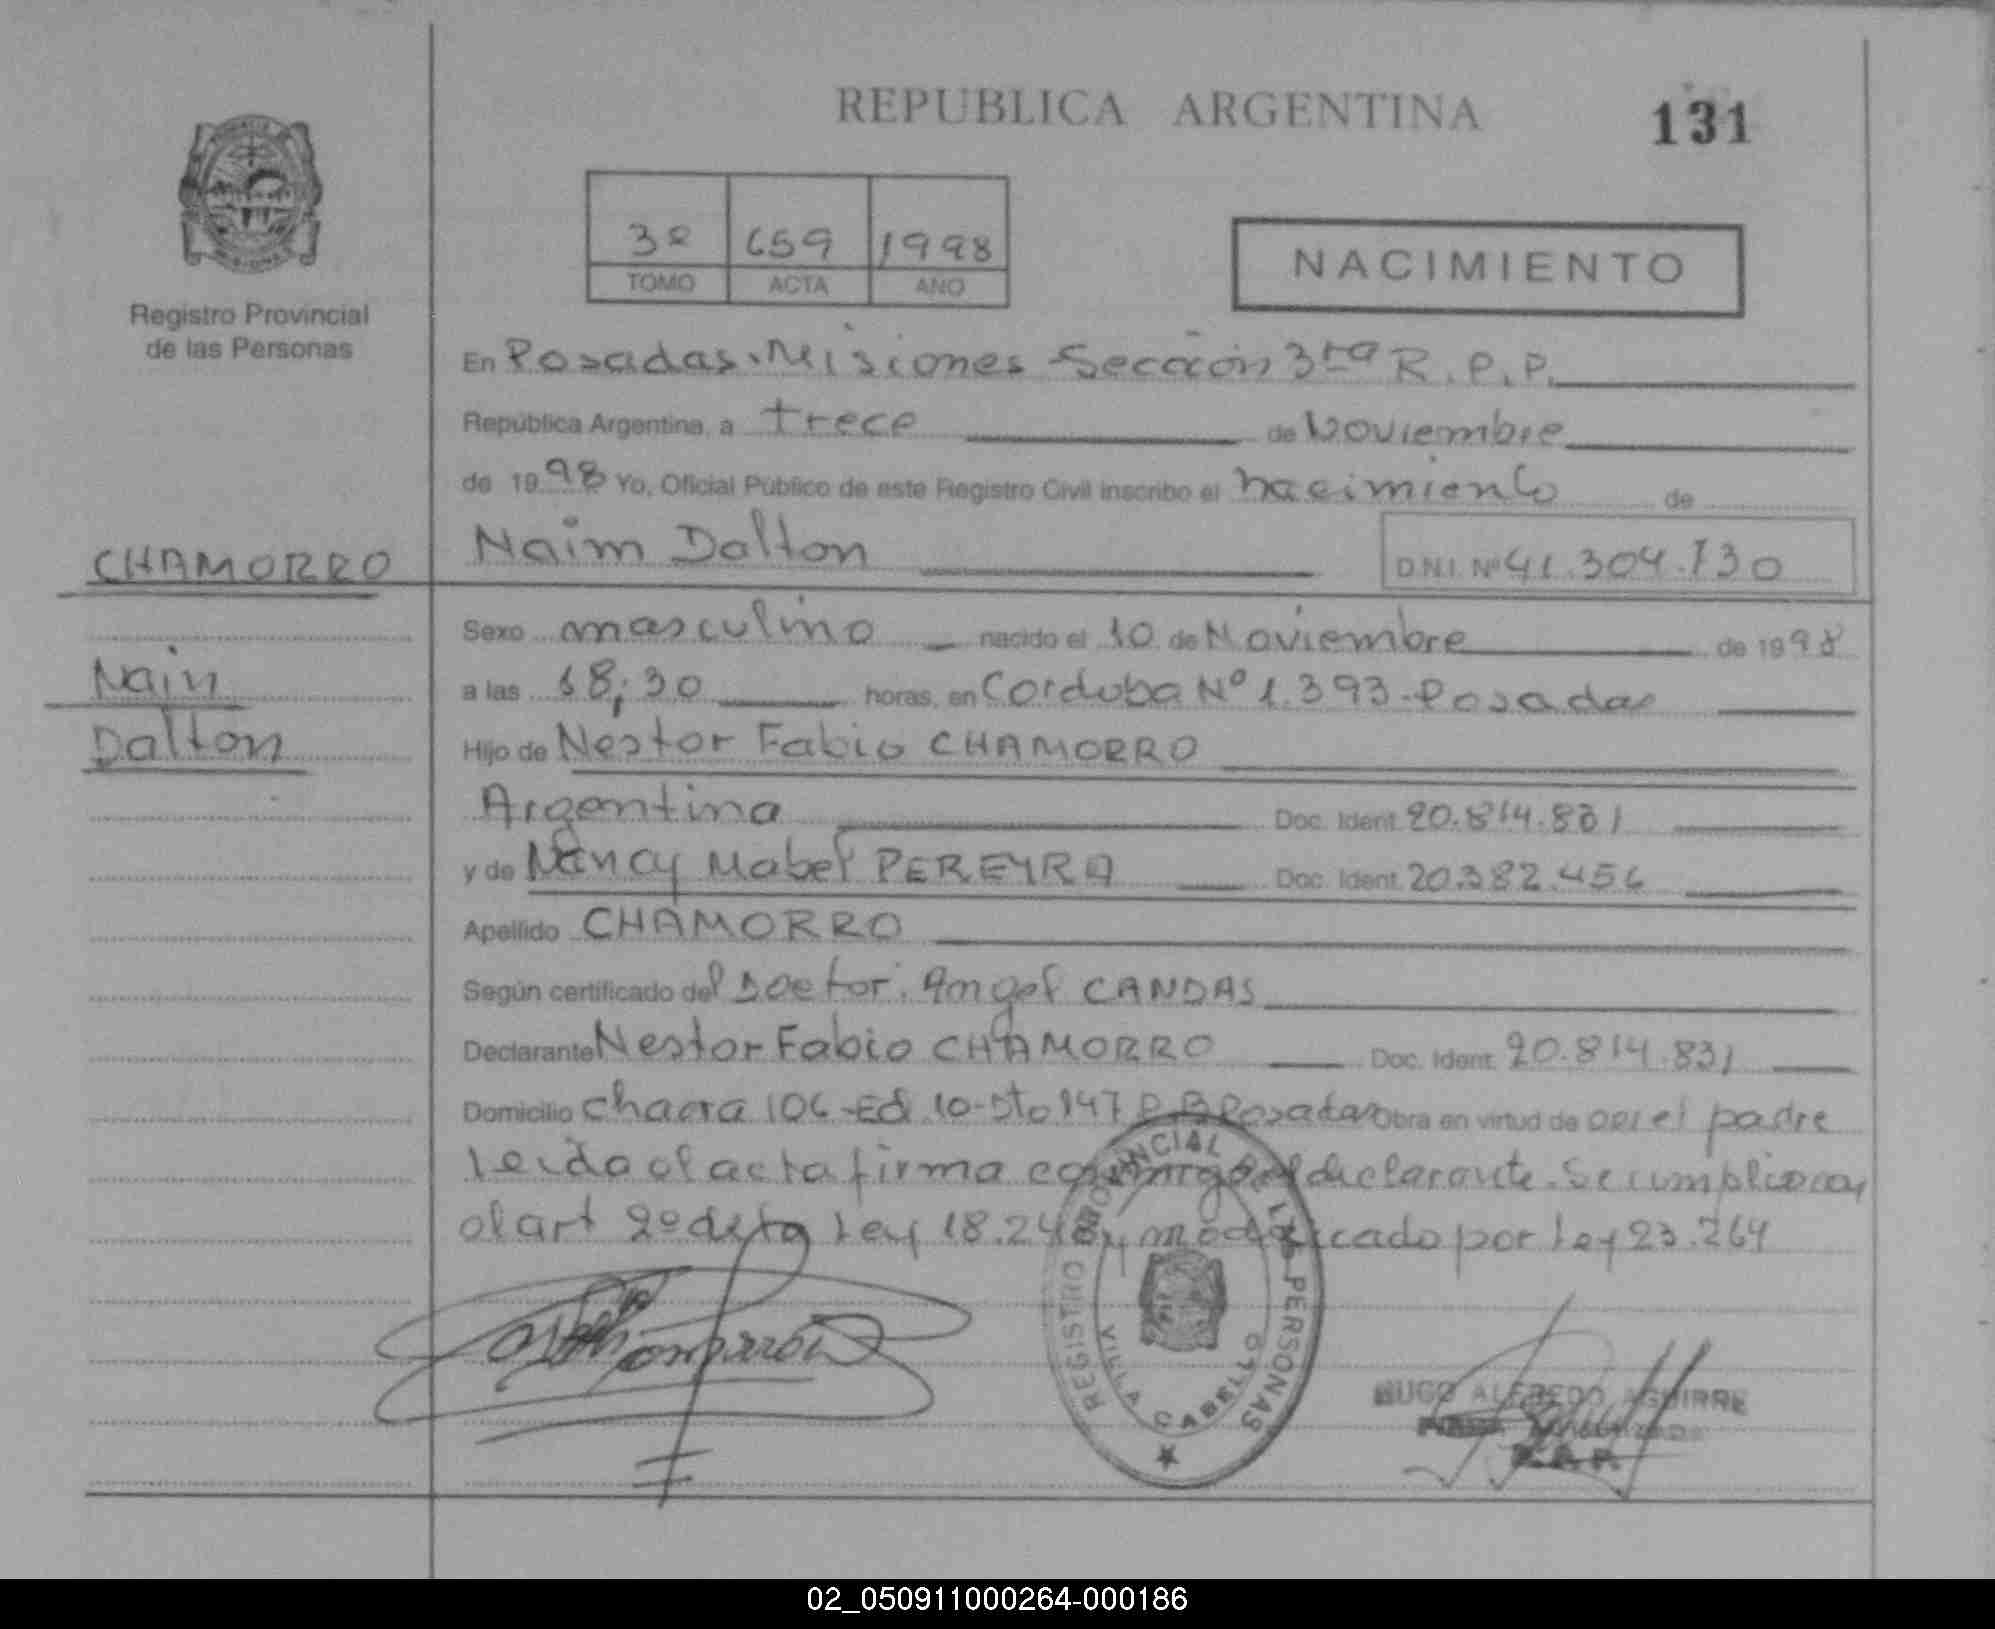 REPUBLICA ARGENTINA
131
3º 659 1998
TOMO ACTA AÑO
NACIMIENTO
Registro Provincial
de las Personas
En Posadas. Misiones Sección 3ra R.P.P.
República Argentina, a trece de Noviembre
de 1998 Yo, Oficial Público de este Registro Civil inscribo el nacimiento de
CHAMORRO
Naim Dalton
D.N.I. Nº 41.304.730
Sexo masculino nacido el 10 de Noviembre de 1998
Nain
a las 18,30 horas, en Cordoba Nº 1.393-Posadas
Dalton
Hijo de Nestor Fabio CHAMORRO
Argentina Doc. Ident. 20.814.831
y de Nancy Mabel PEREYRA Doc. Ident. 20.382.456
Apellido CHAMORRO
Según certificado del Doctor. Angel CANDAS
Declarante Nestor Fabio CHAMORRO Doc. Ident. 20.814.831
Domicilio Chacra 106-Ed 10-Dto 147 P.B Posadas Obra en virtud de ser el padre
leida el acta firma conmigo el declarante. Se cumplio con
el art 2º de la Ley 18.248 y modificado por Ley 23.264
REGISTRO PROVINCIAL DE LAS PERSONAS
VILLA CABELLO
HUGO ALFREDO AGUIRRE
02_050911000264-000186